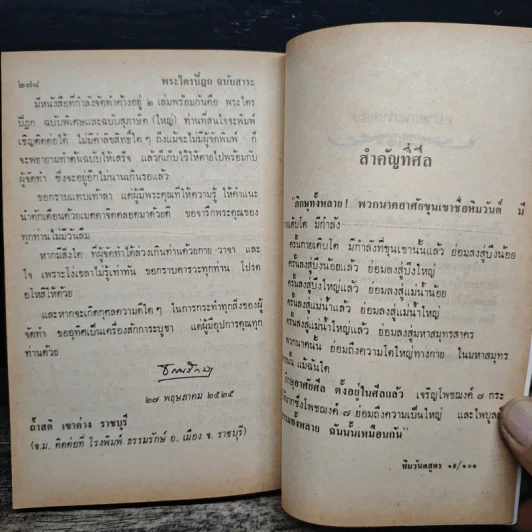 ๒๗๔ พระไตรปิฎก ฉบับสาระ
มีหนังสือที่กำลังจัดทำค้างอยู่ ๒ เล่มพร้อมกันคือ พระไตร
ปิฎก ฉบับพิเศษและฉบับสุภาษิต (ใหญ่) ท่านที่สนใจจะพิมพ์
เชิญติดต่อได้ ไม่มีค่าลิขสิทธิ์ใดๆ ถึงแม้จะไม่มีผู้จัดพิมพ์ ก็
จะพยายามทำต้นฉบับให้เสร็จ แล้วก็เก็บไว้ให้ตายไปพร้อมกับ
ผู้จัดทำ ซึ่งจะอยู่อีกไม่นานเกินรอแล้ว
ขอกราบแทบเท้ามา แด่ผู้มีพระคุณที่ให้ความรู้ ให้คำแนะ
นำตักเตือนด้วยเมตตาจิตตลอดมาด้วยดี ขอจารึกพระคุณของ
ทุกท่านไม่มีวันลืม
หากมีสิ่งใด ที่ผู้จัดทำได้ล่วงเกินท่านด้วยกาย วาจา และ
ใจ เพราะโง่เขลาไม่รู้เท่าทัน ขอกราบคารวะทุกท่าน โปรด
อโหสิให้ด้วย
และหากจะเกิดกุศลความดีใดๆ ในการกระทำทุกสิ่งของผู้
จัดทำ ขออุทิศเป็นเครื่องสักการะบูชา แด่ผู้มีอุปการคุณทุก
ท่านด้วย
๒๗ พฤษภาคม ๒๕๒๕
ถ้ำสติ เขาค่าง ราชบุรี
(จ.ม. ติดต่อที่ โรงพิมพ์ ธรรมรักษ์ อ. เมือง จ. ราชบุรี)
สำคัญที่ศีล
"ภิกษุทั้งหลาย! พวกนาคอาศัยขุนเขาชื่อหิมวันต์ มี
กายเติบโต มีกำลัง
ครั้นกายเติบโต มีกำลังที่ขุนเขานั้นแล้ว ย่อมลงสู่บึงน้อย
ครั้นลงสู่บึงน้อยแล้ว ย่อมลงสู่บึงใหญ่
ครั้นลงสู่บึงใหญ่แล้ว ย่อมลงสู่แม่น้ำน้อย
ครั้นลงสู่แม่น้ำน้อยแล้ว ย่อมลงสู่แม่น้ำใหญ่
ครั้นลงสู่แม่น้ำใหญ่แล้ว ย่อมลงสู่มหาสมุทรสาคร
พวกนาคนั้น ย่อมถึงความโตใหญ่ทางกาย ในมหาสมุทร
นั้น แม้ฉันใด
ภิกษุอาศัยศีล ตั้งอยู่ในศีลแล้ว เจริญโพชฌงค์ ๗ กระ
ทำให้มากซึ่งโพชฌงค์ ๗ ย่อมถึงความเป็นใหญ่ และไพบูลย์
ธรรมทั้งหลาย ฉันนั้นเหมือนกัน"
หิมวันตสูตร ๑๙/๑๐๑